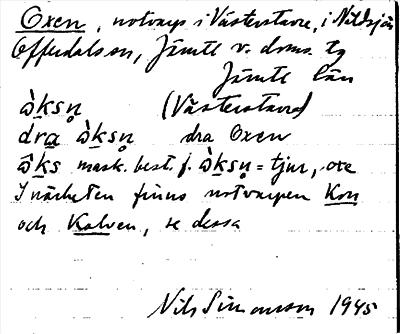 Oxen, notvarp i Västerstavre, i Näldsjön
Offerdals sn, Jämtl. v. doms. tg
Jämtl. län
ὰksn̥ (Västerstavre)
dra ὰksn̥ dra Oxen
ω̂ks mask. best. f. ὰksn̥ = tjur, oxe
I närheten finns notvarpen Kon
och Kalven, se dessa
Nils Simonsson 1945